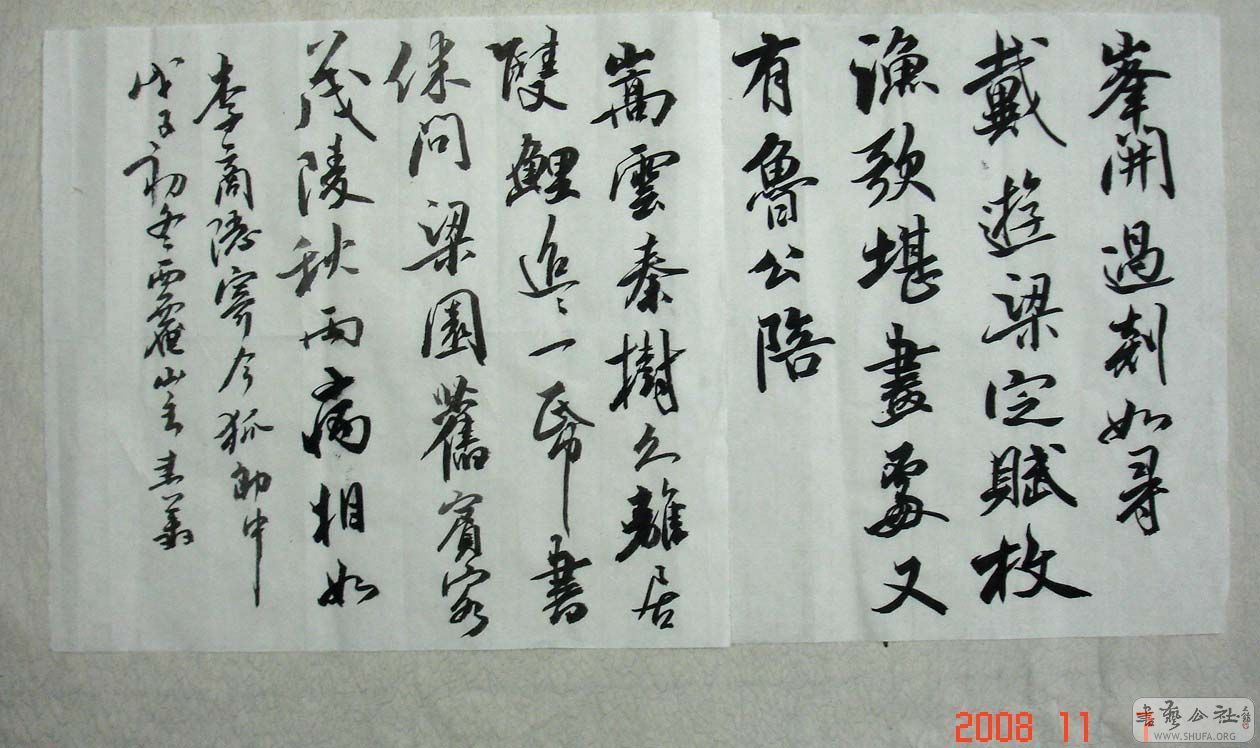 峯開過剡如尋
戴遊梁定賦枚
漁歌堪畫處又
有魯公陪
嵩雲秦樹久離居
雙鯉迢〻一帋書
休問梁園舊賓客
茂陵秋雨病相如
李商隱寄令狐郎中
戊子初冬 山
2008 11 7
書藝公社
WWW.SHUFA.ORG